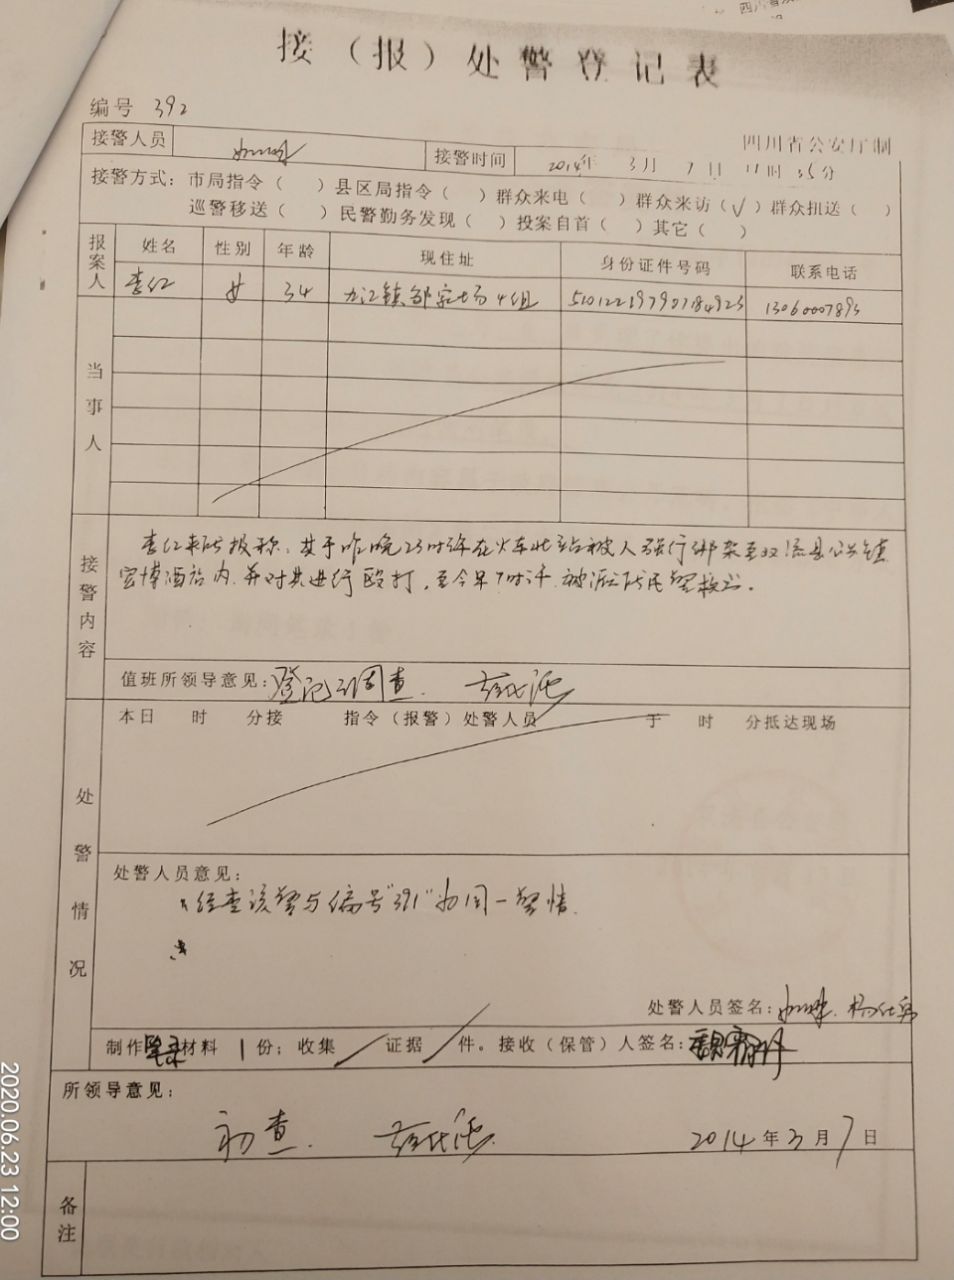 接（报）处警登记表
编号 392
四川省公安厅制
接警人员 接警时间 2014年 3月 7日 11时 35分
接警方式：市局指令（ ）县区局指令（ ）群众来电（ ）群众来访（√）群众扭送（ ）
巡警移送（ ）民警勤务发现（ ）投案自首（ ）其它（ ）
报案人 姓名 性别 年龄 现住址 身份证件号码 联系电话
李红 女 34 九江镇邹家场4组 510122197907184923 13060007893
当事人
接警内容
李红来所报称，其于昨晚23时许在火车北站被人强行绑架至双流县公兴镇
宫博酒店内，并对其进行殴打，至今早7时许，被派出所民警救出。
值班所领导意见：登记调查．
处警情况
本日 时 分接 指令（报警）处警人员 于 时 分抵达现场
处警人员意见：
经查该警与编号"391"为同一警情．
处警人员签名：
制作笔录材料 1份；收集 证据 件。接收（保管）人签名：
所领导意见：
初查．
2014年3月7日
备注
2020.06.23 12:00